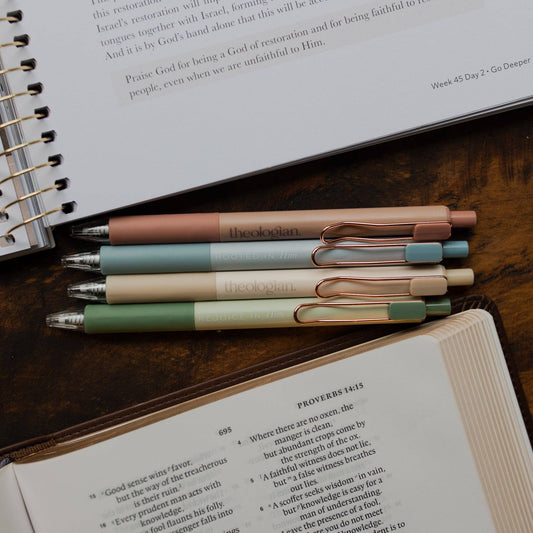 this restoration will
Israel's restoration will impa
tongues together with Israel, forming
And it is by God's hand alone that this will be ac
Praise God for being a God of restoration and for being faithful to
people, even when we are unfaithful to Him.
Week 45 Day 2 • Go Deeper
theologian.
ROOTED IN Him
theologian.
REJOICE IN Him
695
PROVERBS 14:15
15 "Good sense wins favor,
but the way of the treacherous
is their ruin.
16 Every prudent man acts with
knowledge,
a fool flaunts his folly.
messenger falls into
4 Where there are no oxen, the
manger is clean,
but abundant crops come by
the strength of the ox.
5 A faithful witness does not lie,
but a false witness breathes
out lies.
6 A scoffer seeks wisdom in vain,
but knowledge is easy for a
man of understanding.
Leave the presence of a fool,
there you do not meet
knowledge.
prudent is to